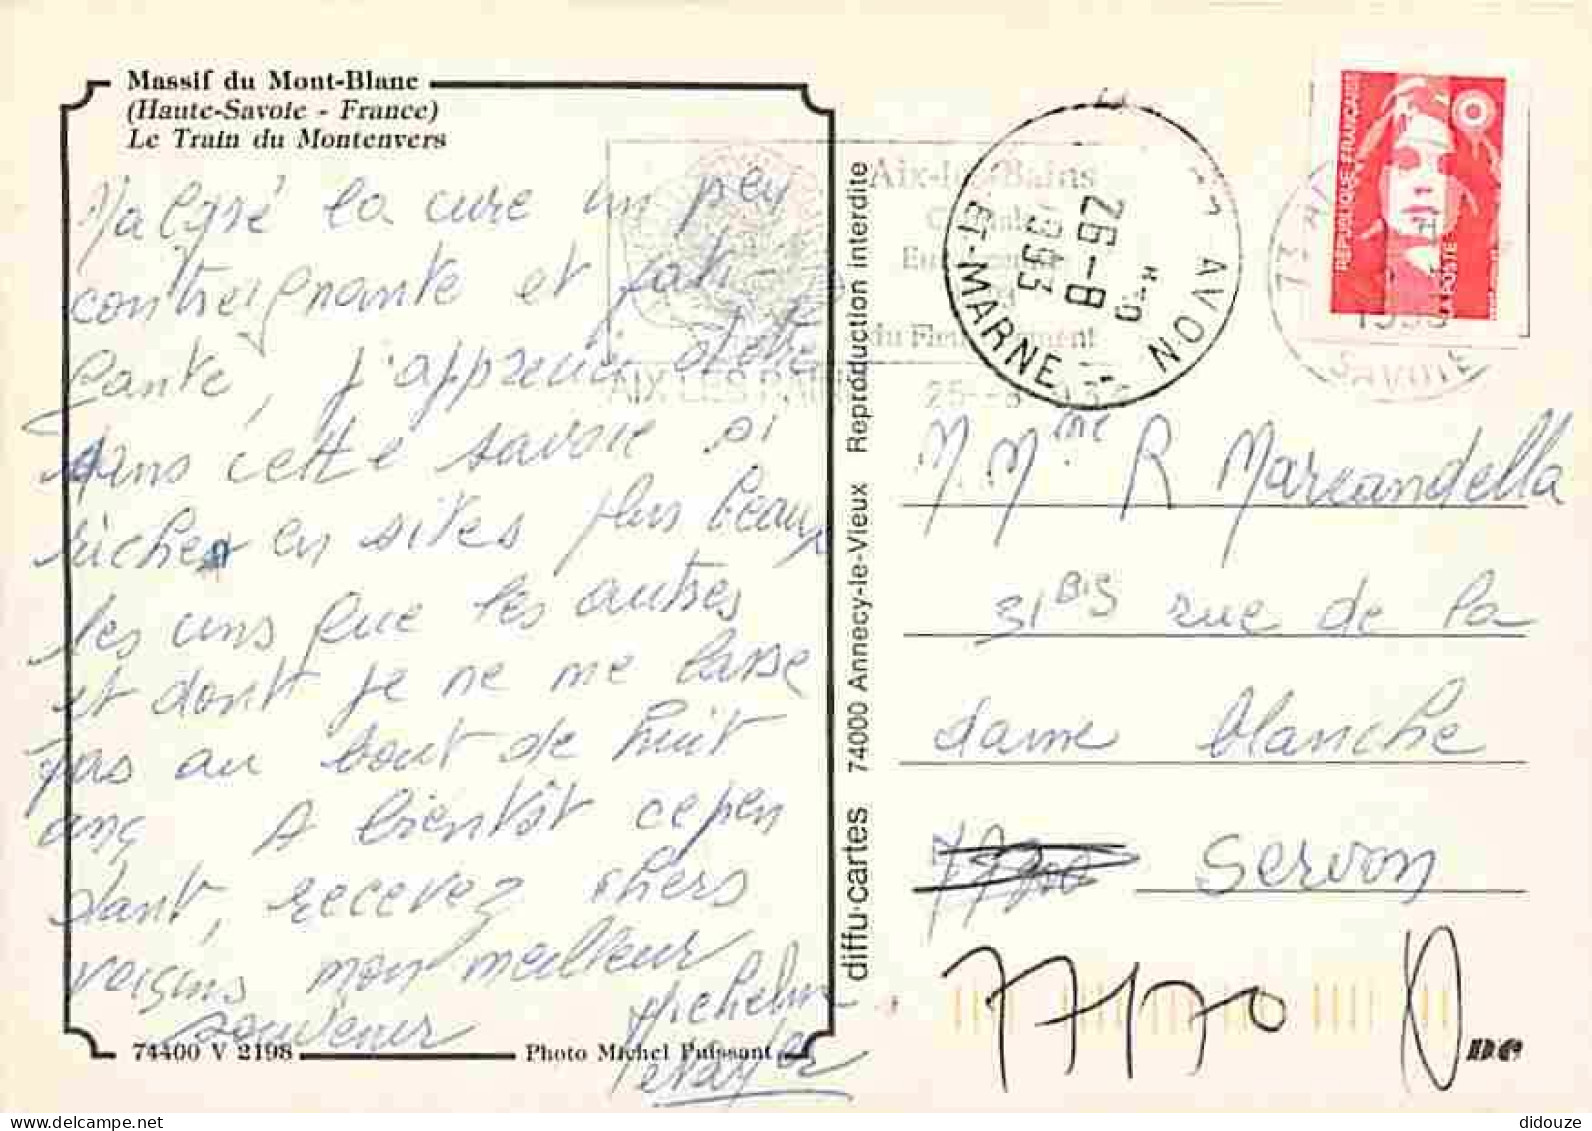 Massif du Mont-Blanc
(Haute-Savoie - France)
Le Train du Montenvers
Malgré la cure un peu
contreignante et fati
gante, j'apprécie d'être
dans cette savoie si
riche en sites plus beaux
les uns que les autres
et dont je ne me lasse
pas au bout de huit
ans A bientôt cepen
dant, recevez chers
voisins mon meilleur
souvenir
74400 V 2198
Photo Michel Puissant
diffu-cartes 74000 Annecy-le-Vieux Reproduction interdite
Aix-les-Bains
AIX LES BAINS
AVON
26-8
1993
ET-MARNE
REPUBLIQUE FRANÇAISE
LA POSTE
SAVOIE
M Mme R Marcandella
31 BIS rue de la
dame blanche
Servon
77170
didouze